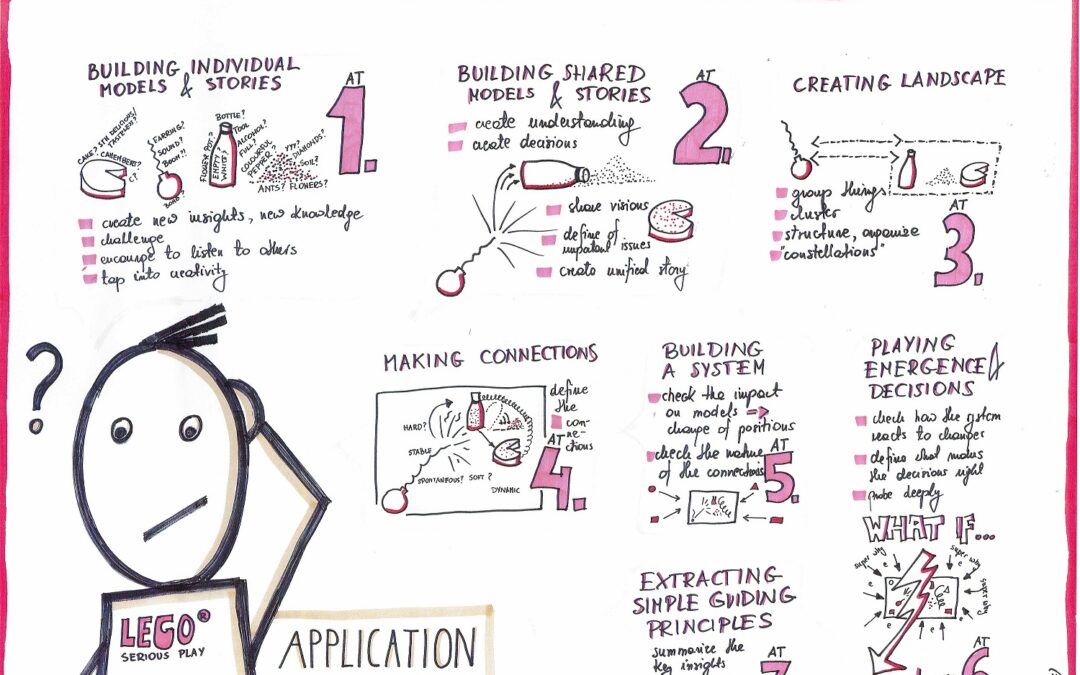 BUILDING INDIVIDUAL
MODELS & STORIES
AT
1.
CAKE? 5TH DELICIOUS/
FASTENER?
CAMEMBERT?
C?
EARRING?
SOUND?
BOOM?!
BOMB?
BOTTLE?
FLOWER POT?
EMPTY?
WHITE?
TOOL
ALCOHOL?
FULL?
COLOURFUL
PEPPER?
???
DIAMONDS?
SOIL?
ANTS? FLOWERS?
create new insights, new knowledge
challenge
encourge to listen to others
tap into creativity
BUILDING SHARED
MODELS & STORIES
AT
2.
create understanding
create decisions
share visions
define of
impotant issues
create unified story
CREATING LANDSCAPE
group things
cluster
structure, organise
"constellations"
AT
3.
?
MAKING CONNECTIONS
define
the
con-
ne-
ctions
HARD?
STABLE
SPONTANIOUS? SOFT?
DYNAMIC
AT
4.
BUILDING
A SYSTEM
check the impact
on models
change of positions
check the nature
of the connections
AT
5.
PLAYING
EMERGENCE &
DECISIONS
check how the system
reacts to changes
define what makes
the decisions right
probe deeply
WHAT IF...
super why
super why
super why
e
e
e
e
AT
6
EXTRACTING
SIMPLE GUIDING
PRINCIPLES
summarize the
key insights
AT
7
LEGO®
SERIOUS PLAY
APPLICATION